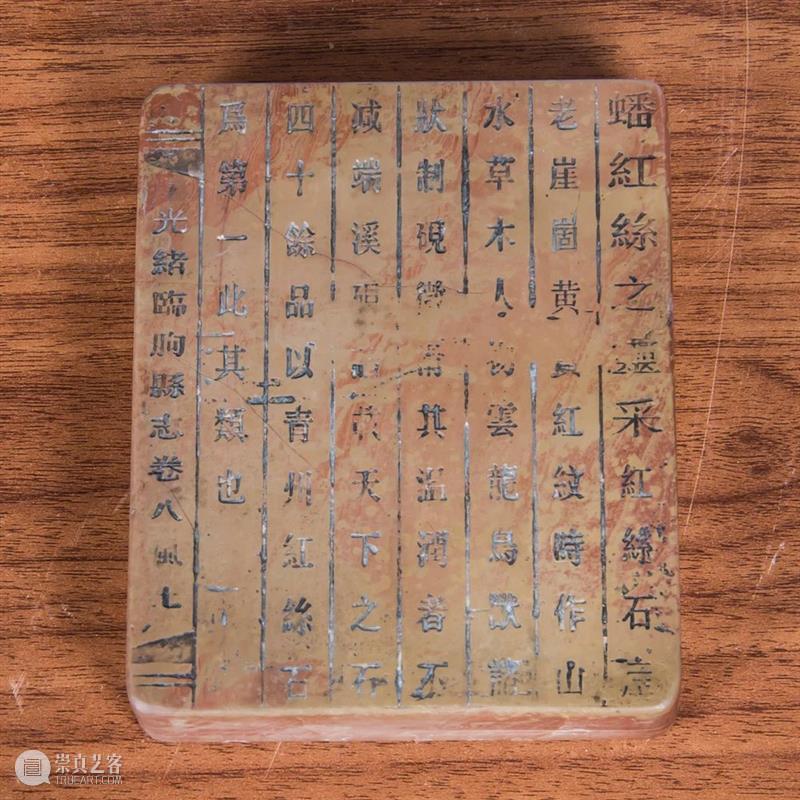 蟠紅絲之采紅絲石產
老崖崮黃紅紋時作山
水草木人物雲龍鳥獸諸
狀制硯其溫潤者不
减端溪硯載天下之石
四十餘品以青州紅絲石
爲第一此其類也
光緒臨朐縣志卷八 風 七
崇真艺客
TRUEART.COM